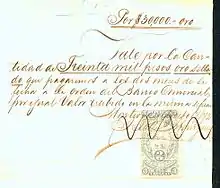 Por $30000 - oro
Vale por la Can-
tidad de Treinta mil pesos oro sella-
do que pagaremos a los dos meses de la
fecha a la orden del Banco Comercial
por igual valor recibido en la misma especie
Montevideo